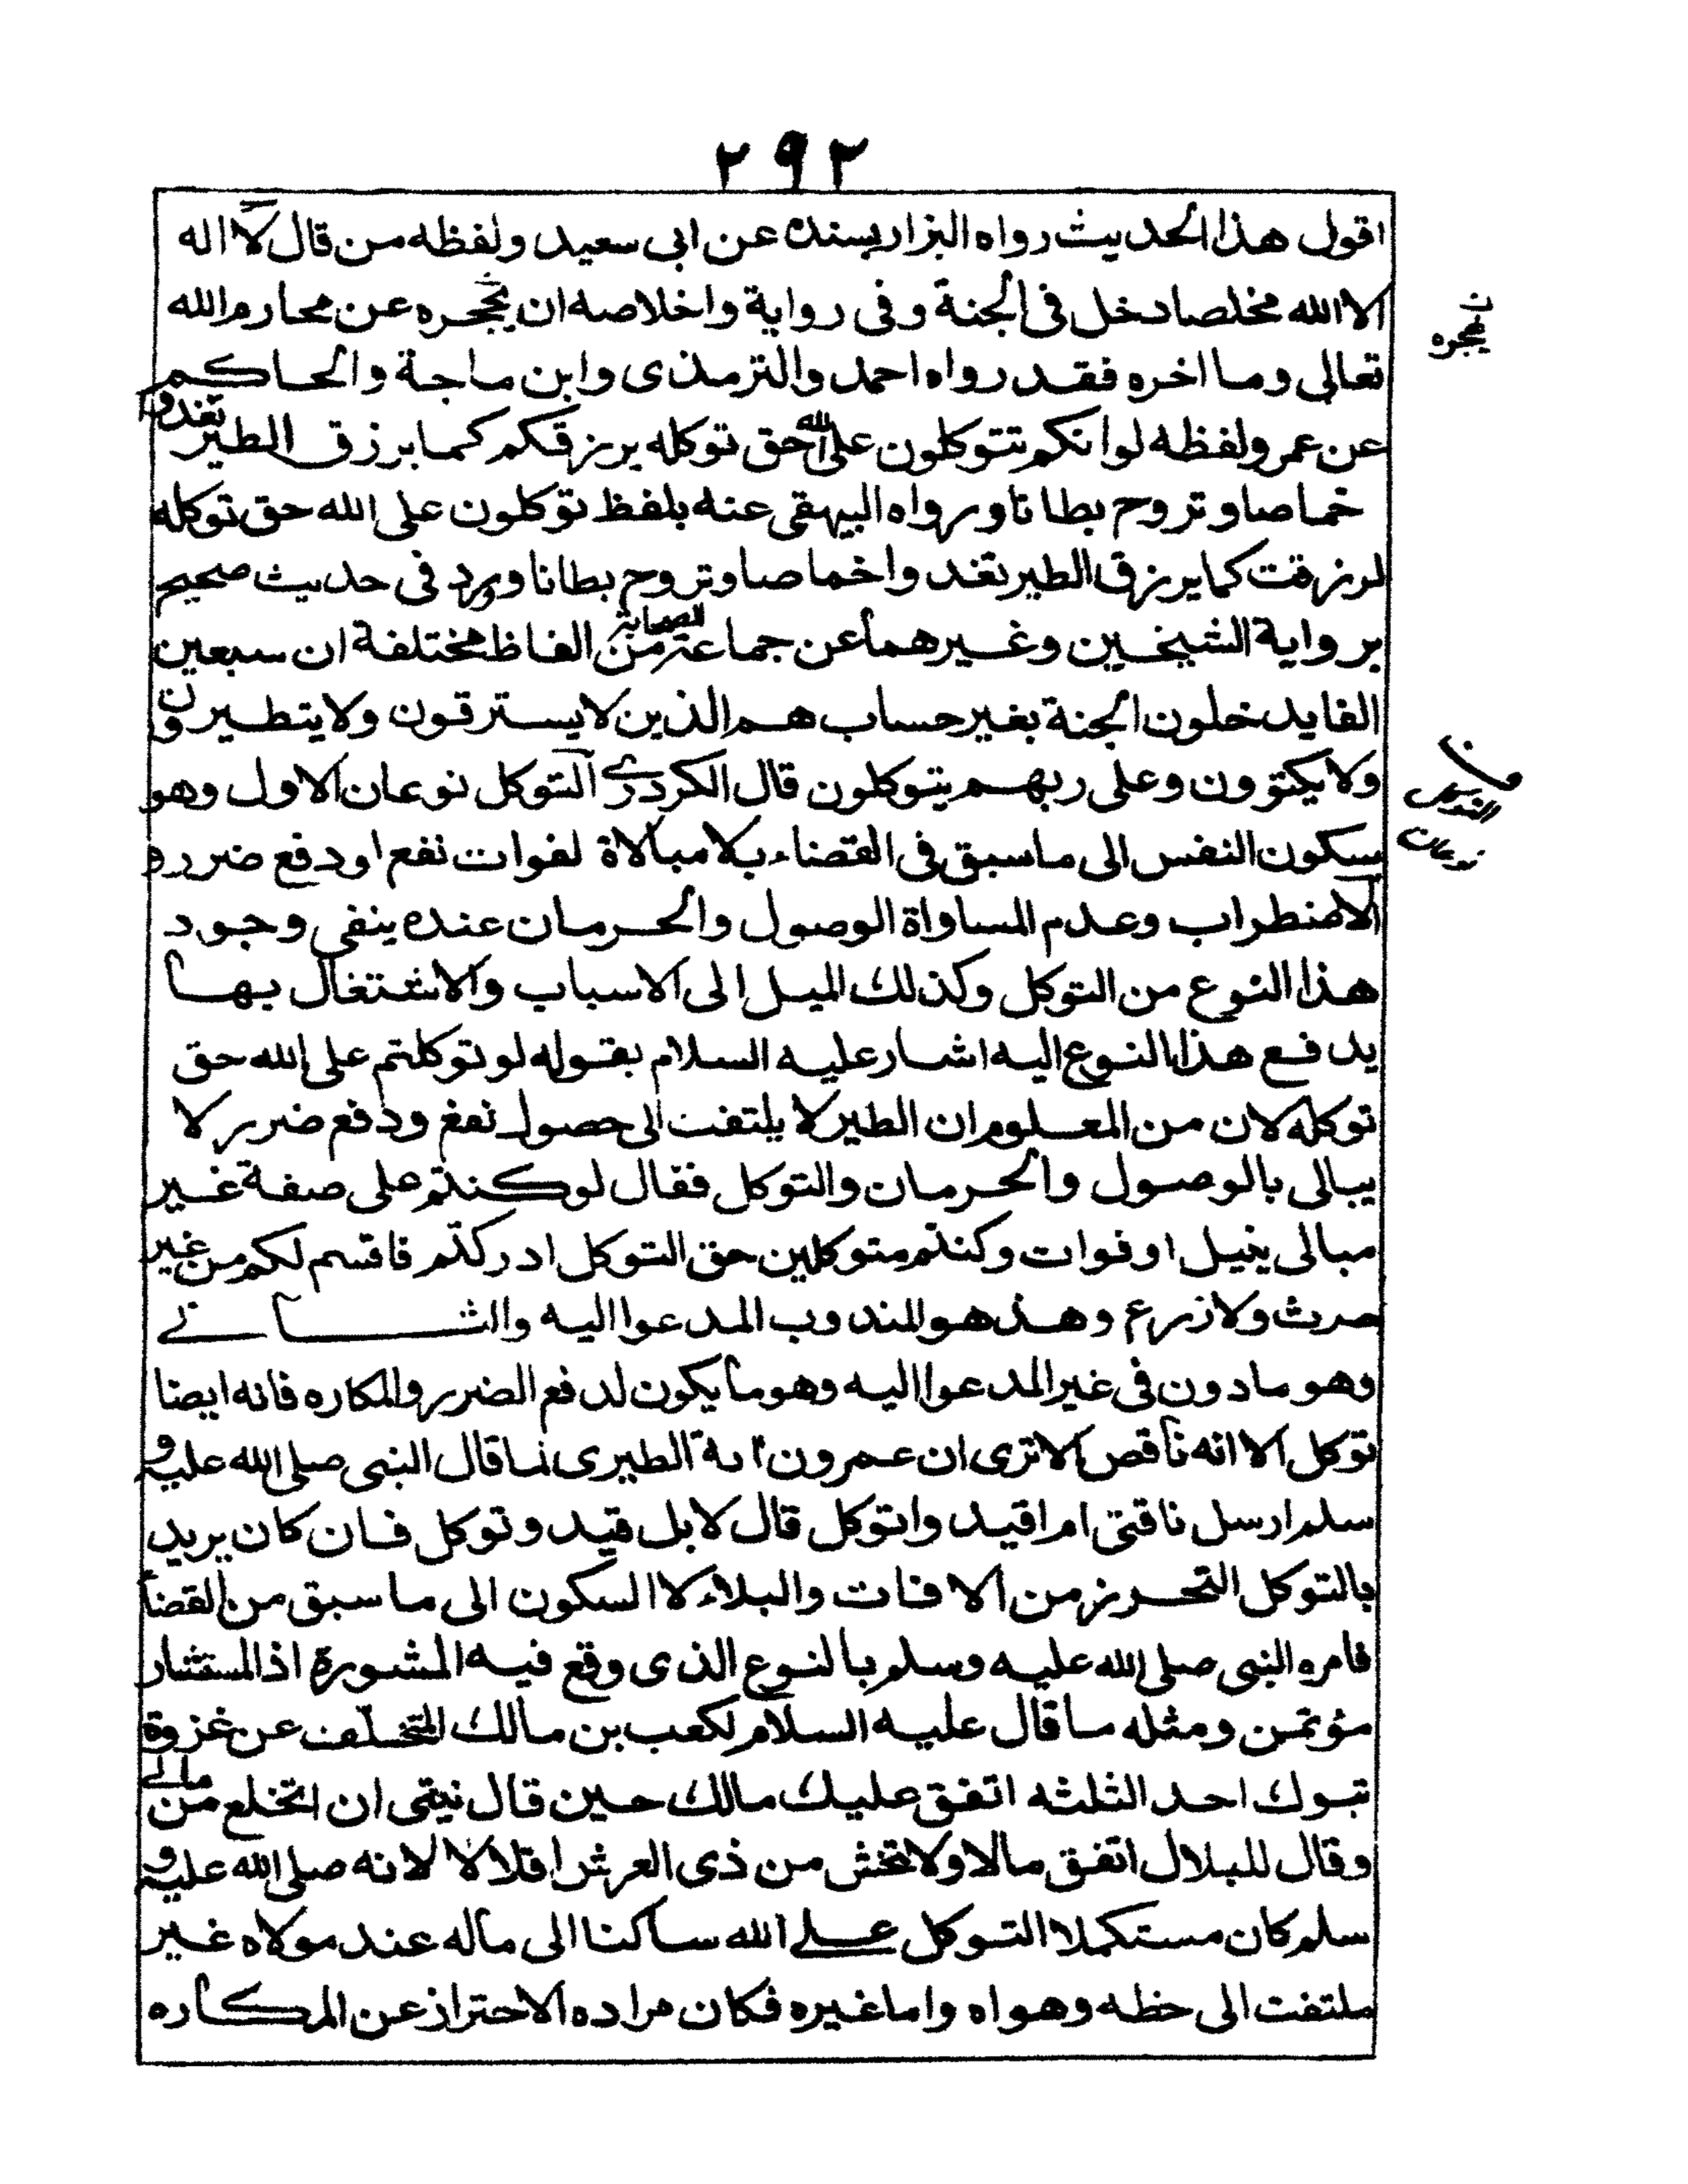 ٢٩٢
اقول هذا الحديث رواه البزار بسنده عن ابى سعيد ولفظه من قال لا اله
الا الله مخلصا دخل فى الجنة وفى رواية واخلاصه ان يحجره عن محارم الله
يحجره
تعالى وما اخره فقد رواه احمد والترمذى وابن ماجة والحاكم
عن عمر ولفظه لو انكم تتوكلون على الله حق توكله يرزقكم كما يرزق الطير تغدوا
خماصا وتروح بطانا ورواه البيهقى عنه بلفظ توكلون على الله حق توكله
لرزقت كما يرزق الطير تغدوا خماصا وتروح بطانا وورد فى حديث صحيح
برواية الشيخين وغيرهما عن جماعة من الصحابة الفاظ مختلفة ان سبعين
الفا يدخلون الجنة بغير حساب هم الذين لا يسترقون ولا يتطيرون
ولا يكتوون وعلى ربهم يتوكلون قال الكردرى التوكل نوعان الاول وهو
التوكل
نوعان
سكون النفس الى ما سبق فى القضاء بلا مبالاة لفوات نفع او دفع ضرره
الاضطراب وعدم المساواة الوصول والحرمان عنده ينفى وجود
هذا النوع من التوكل وكذلك الميل الى الاسباب والاشتغال بها
يدفع هذا النوع اليه اشار عليه السلام بقوله لو توكلتم على الله حق
توكله لان من المعلوم ان الطير لا يلتفت الى حصول نفع ودفع ضرر لا
يبالى بالوصول والحرمان والتوكل فقال لو كنتم على صفة غير
مبالى بنيل او فوات وكنتم متوكلين حق التوكل ادركتم فاقسم لكم من غير
حرث ولا زرع وهذ هو المندوب المدعوا اليه والثانى
وهو مادون فى غير المدعوا اليه وهو ما يكون لدفع الضرر والمكاره فانه ايضا
توكل الا انه ناقص الا ترى ان عمرون الطيرى لما قال النبى صلى الله عليه و
سلم ارسل ناقتى ام اقيد واتوكل قال لا بل قيد وتوكل فان كان يريد
بالتوكل التحرز من الافات والبلاء لا السكون الى ما سبق من القضاء
فامره النبى صلى الله عليه وسلم بالنوع الذى وقع فيه المشورة اذ المستشار
مؤتمن ومثله ما قال عليه السلام لكعب بن مالك المتخلف عن غزوة
تبوك احد الثلثه اتفق عليك مالك حين قال نيتى ان اتخلع من مالى
وقال للبلال اتفق مالا ولا تخش من ذى العرش اقلالا لانه صلى الله عليه و
سلم كان مستكملا التوكل على الله ساكنا الى ماله عند مولاه غير
ملتفت الى حظه وهواه واما غيره فكان مراده الاحتراز عن المكاره